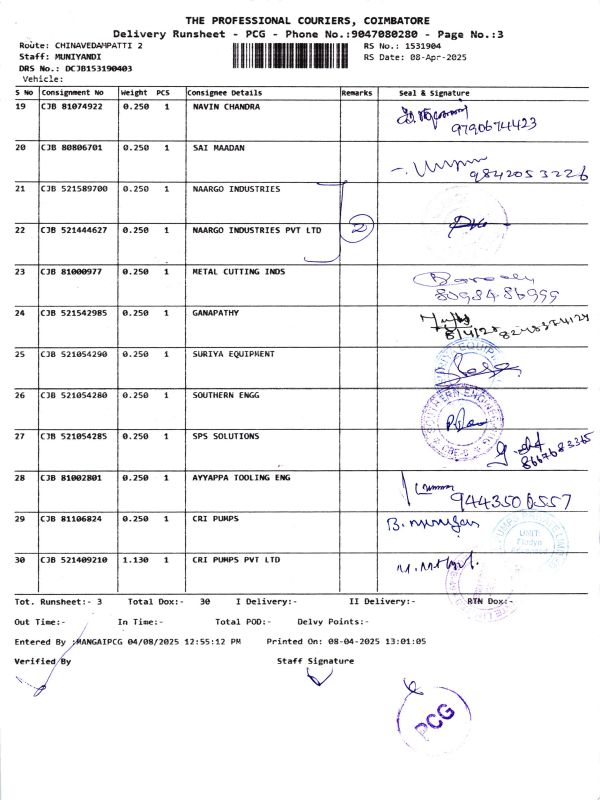 THE PROFESSIONAL COURIERS, COIMBATORE
Delivery Runsheet - PCG - Phone No.:9047080280 - Page No.:3
Route: CHINAVEDAMPATTI 2 RS No.: 1531904
Staff: MUNIYANDI RS Date: 08-Apr-2025
DRS No.: DCJB153190403
Vehicle:
S No Consignment No Weight PCS Consignee Details Remarks Seal & Signature
19 CJB 81074922 0.250 1 NAVIN CHANDRA
9790674423
20 CJB 80806701 0.250 1 SAI MAADAN
9842053226
21 CJB 521589700 0.250 1 NAARGO INDUSTRIES
22 CJB 521444627 0.250 1 NAARGO INDUSTRIES PVT LTD 2
23 CJB 81000977 0.250 1 METAL CUTTING INDS
80984 86999
24 CJB 521542985 0.250 1 GANAPATHY
8/4/25 8248374129
25 CJB 521054290 0.250 1 SURIYA EQUIPMENT
26 CJB 521054280 0.250 1 SOUTHERN ENGG
27 CJB 521054285 0.250 1 SPS SOLUTIONS
8667683365
28 CJB 81002801 0.250 1 AYYAPPA TOOLING ENG
9443506557
29 CJB 81106824 0.250 1 CRI PUMPS
B. Murugan
30 CJB 521409210 1.130 1 CRI PUMPS PVT LTD
Tot. Runsheet:- 3 Total Dox:- 30 I Delivery:- II Delivery:- RTN Dox:-
Out Time:- In Time:- Total POD:- Delvy Points:-
Entered By :MANGAIPCG 04/08/2025 12:55:12 PM Printed On: 08-04-2025 13:01:05
Verified By Staff Signature
PCG